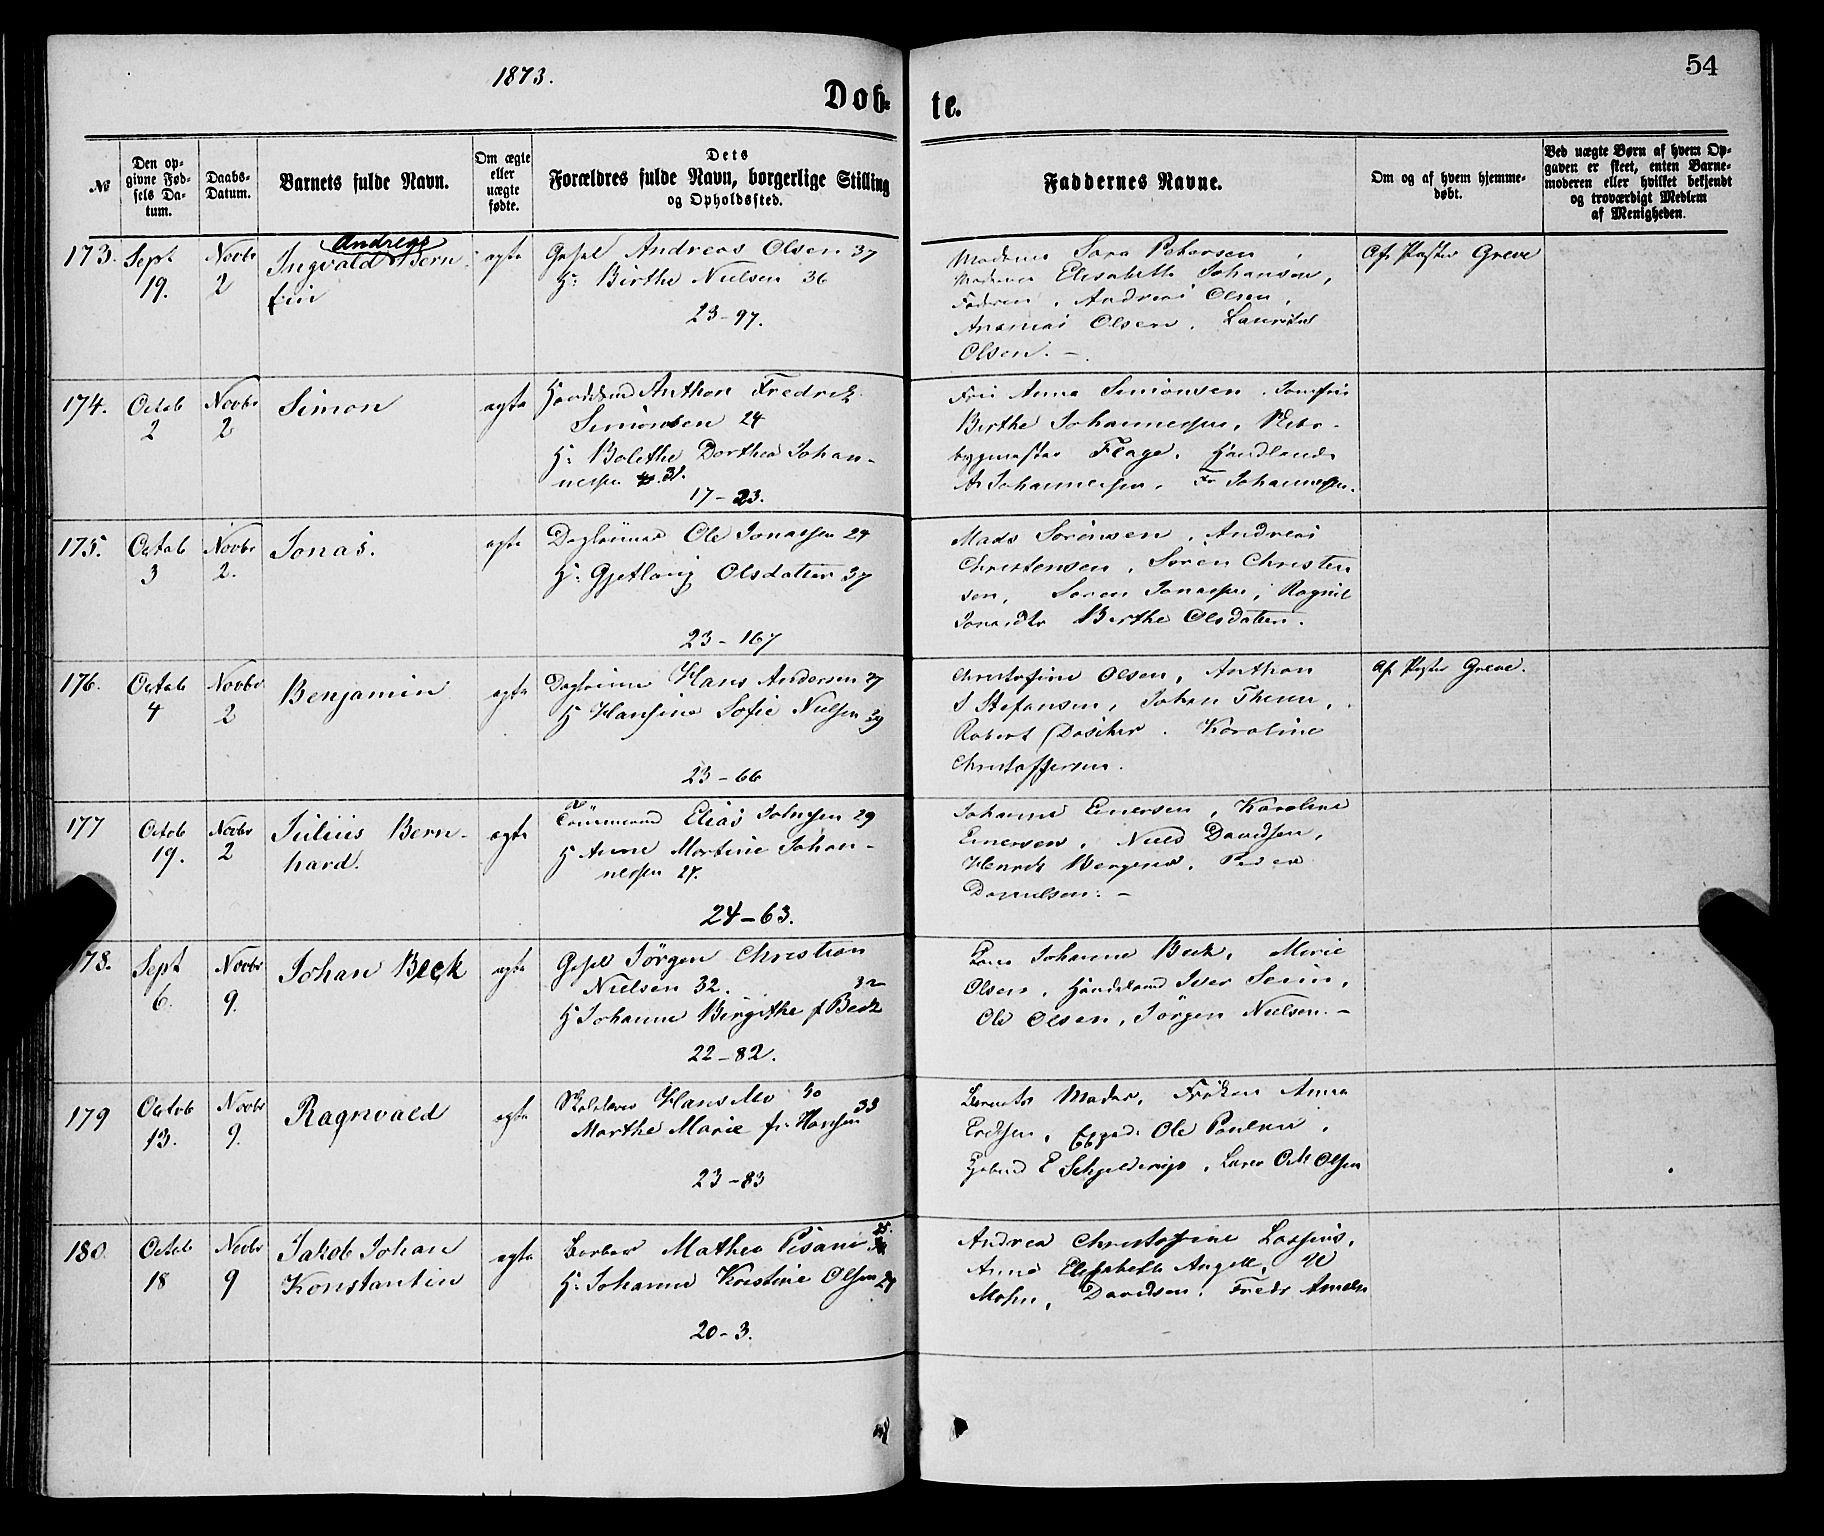 1873.
54
Døbte.
№
Den opgivne Fødsels Datum.
Daabs-Datum.
Barnets fulde Navn.
Om ægte eller uægte fødte.
Dets Forældres fulde Navn, borgerlige Stilling og Opholdssted.
Faddernes Navne.
Om og af hvem hjemmedøbt.
Ved uægte Børn af hvem Opgaven er skeet, enten Barnemoderen eller hvilket bekjendt og troværdigt Medlem af Menigheden.
173. Sept 19. Novbr 2
Andreas
Ingvald Bern
tin
ægte
Gesel Andreas Olsen 37
H: Birthe Nielsen 36
23-97.
Moderen Sara Petersen,
Elisabeth Johansen,
Faderen, Andreas Olsen,
Ananias Olsen, Lauritz
Olsen. -
Af Pastor Greve
174. Octob 2 Novbr 2
Simon
ægte
Anthon Fredrik
Simonsen 24
H: Bolethe Dorthea Johan-
nessen 31.
17-23.
Anna Simonsen, Jomfru
Birthe Johannessen,
Flage, Handlende
A Johannessen, Fr Johannessen.
175. Octob 3 Novbr 2.
Jonas.
ægte
Ole Jonassen 29
H: Gjetlaug Olsdatter 37
23-167
Mads Sørensen, Andreas
Christensen, Søren Christen
sen, Søren Jonassen, Ragnil
Jonasdtr Birthe Olsdatter.
176. Octob 4 Novbr 2
Benjamin
ægte
Hans Andersen 37
H Hansine Sofie Nielsen 39
23-66
Christofine Olsen, Anthon
S Stefansen, Johan Thenn,
Robert Karoline
Christoffersen.
Af Pastor Greve.
177 Octob 19. Novbr 2
Julius Bern-
hard.
ægte
Tømmermd Elias Johnsen 29
H Anne Martine Johan-
nessen 27.
24-63.
Johanne Einersen, Karoline
Einersen, Niels Davidsen,
Henrik Bergersen, Peder
Danielsen. -
178. Sept 6. Novbr 9.
Johan Beck
ægte
Gesel Jørgen Christian
Nielsen 32.
H Johanne Birgithe f Beck 32
22-82.
Johanne Beck, Marie
Olsen, Iver Seim,
Ole Olsen, Jørgen Nielsen. -
179 Octob 13. Novbr 9.
Ragnvald
ægte
Skolelærer Hans Mo 40
Marthe Marie f. Hansen 33
23-83
Barnets Moder, Frøken Anna
Ole Paulsen,
E Schjelderup, Lærer O M Olsen
180. Octob 18 Novbr 9
Jakob Johan
Konstantin
ægte
Barber Matheo Pisani 25.
H: Johanne Kristine Olsen 29
20-3.
Andrea Christofine
Anna Elisabeth Angell, N
Mohn, Davidsen, Fredr Amelin